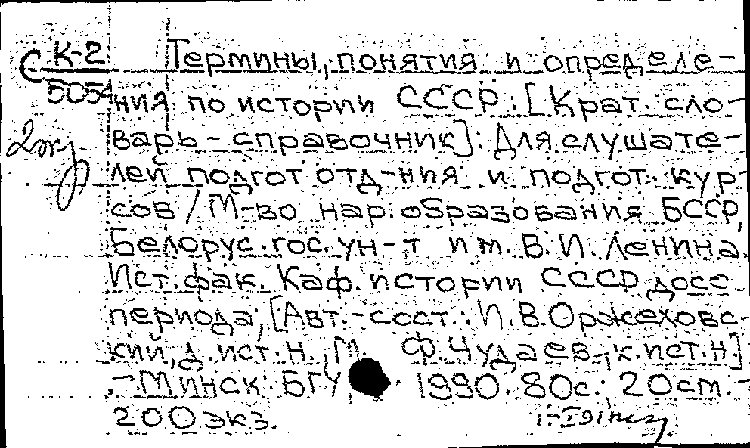 К-2 Термины, понятия и определе-
5054 ния по истории СССР: [Крат. сло-
2экз варь-справочник]: Для слушате-
лей подгот отд-ния и подгот. кур-
сов / М-во нар. образования БССР,
Белорус. гос. ун-т им. В. И. Ленина.
Ист. фак. Каф. истории СССР досо-
периода; [Авт.-сост.: И. В. Оржеховс-
кий, д. ист. н., М. Ф. Чудаев, к. ист. н.]
.-Минск: БГУ, 1990. 80с.; 20см.-
200экз.